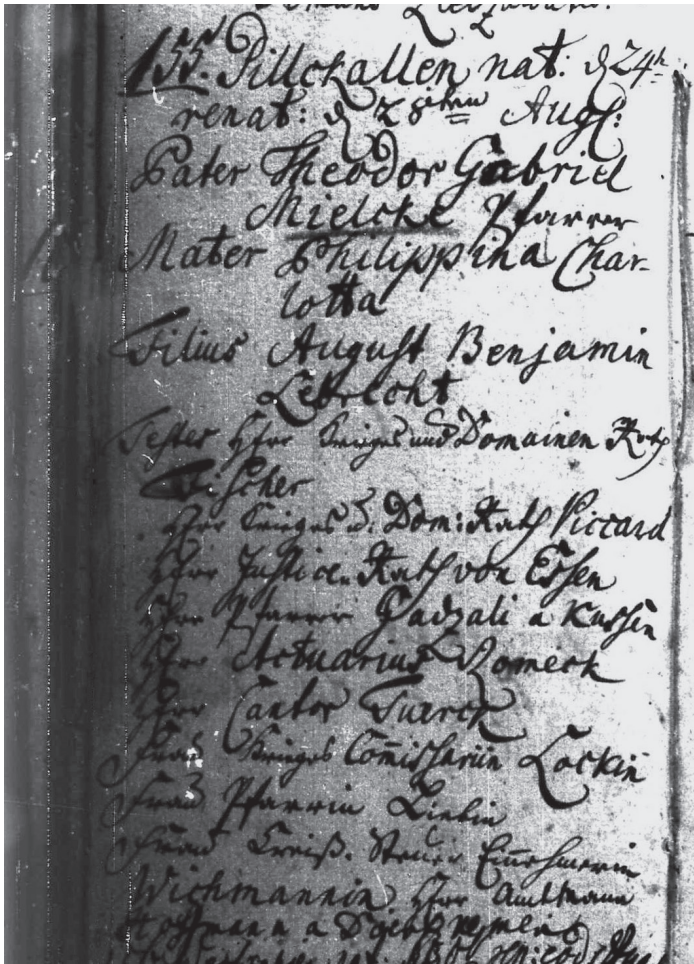 155. Pillckallen nat: d 24t
renat: d 28sten Aug:
Pater Theodor Gabriel
Mielcke Pfarrer
Mater Philippina Char-
lotta
Filius August Benjamin
Lebrecht
Testes Herr Krieges und Domainen Rath
Fischer
Herr Krieges u. Dom: Rath Piccard
Herr Justice Rath von Essen
Herr Pfarrer Gadzali a Kussen
Herr Actuarius Romeck
Herr Cantor Tuerck
Frau Krieges Commissariin Lockin
Frau Pfarrin
Frau Creiß. Steuer Einnehmerin
Wichmannin Herr Amtmann
Hoffmann a